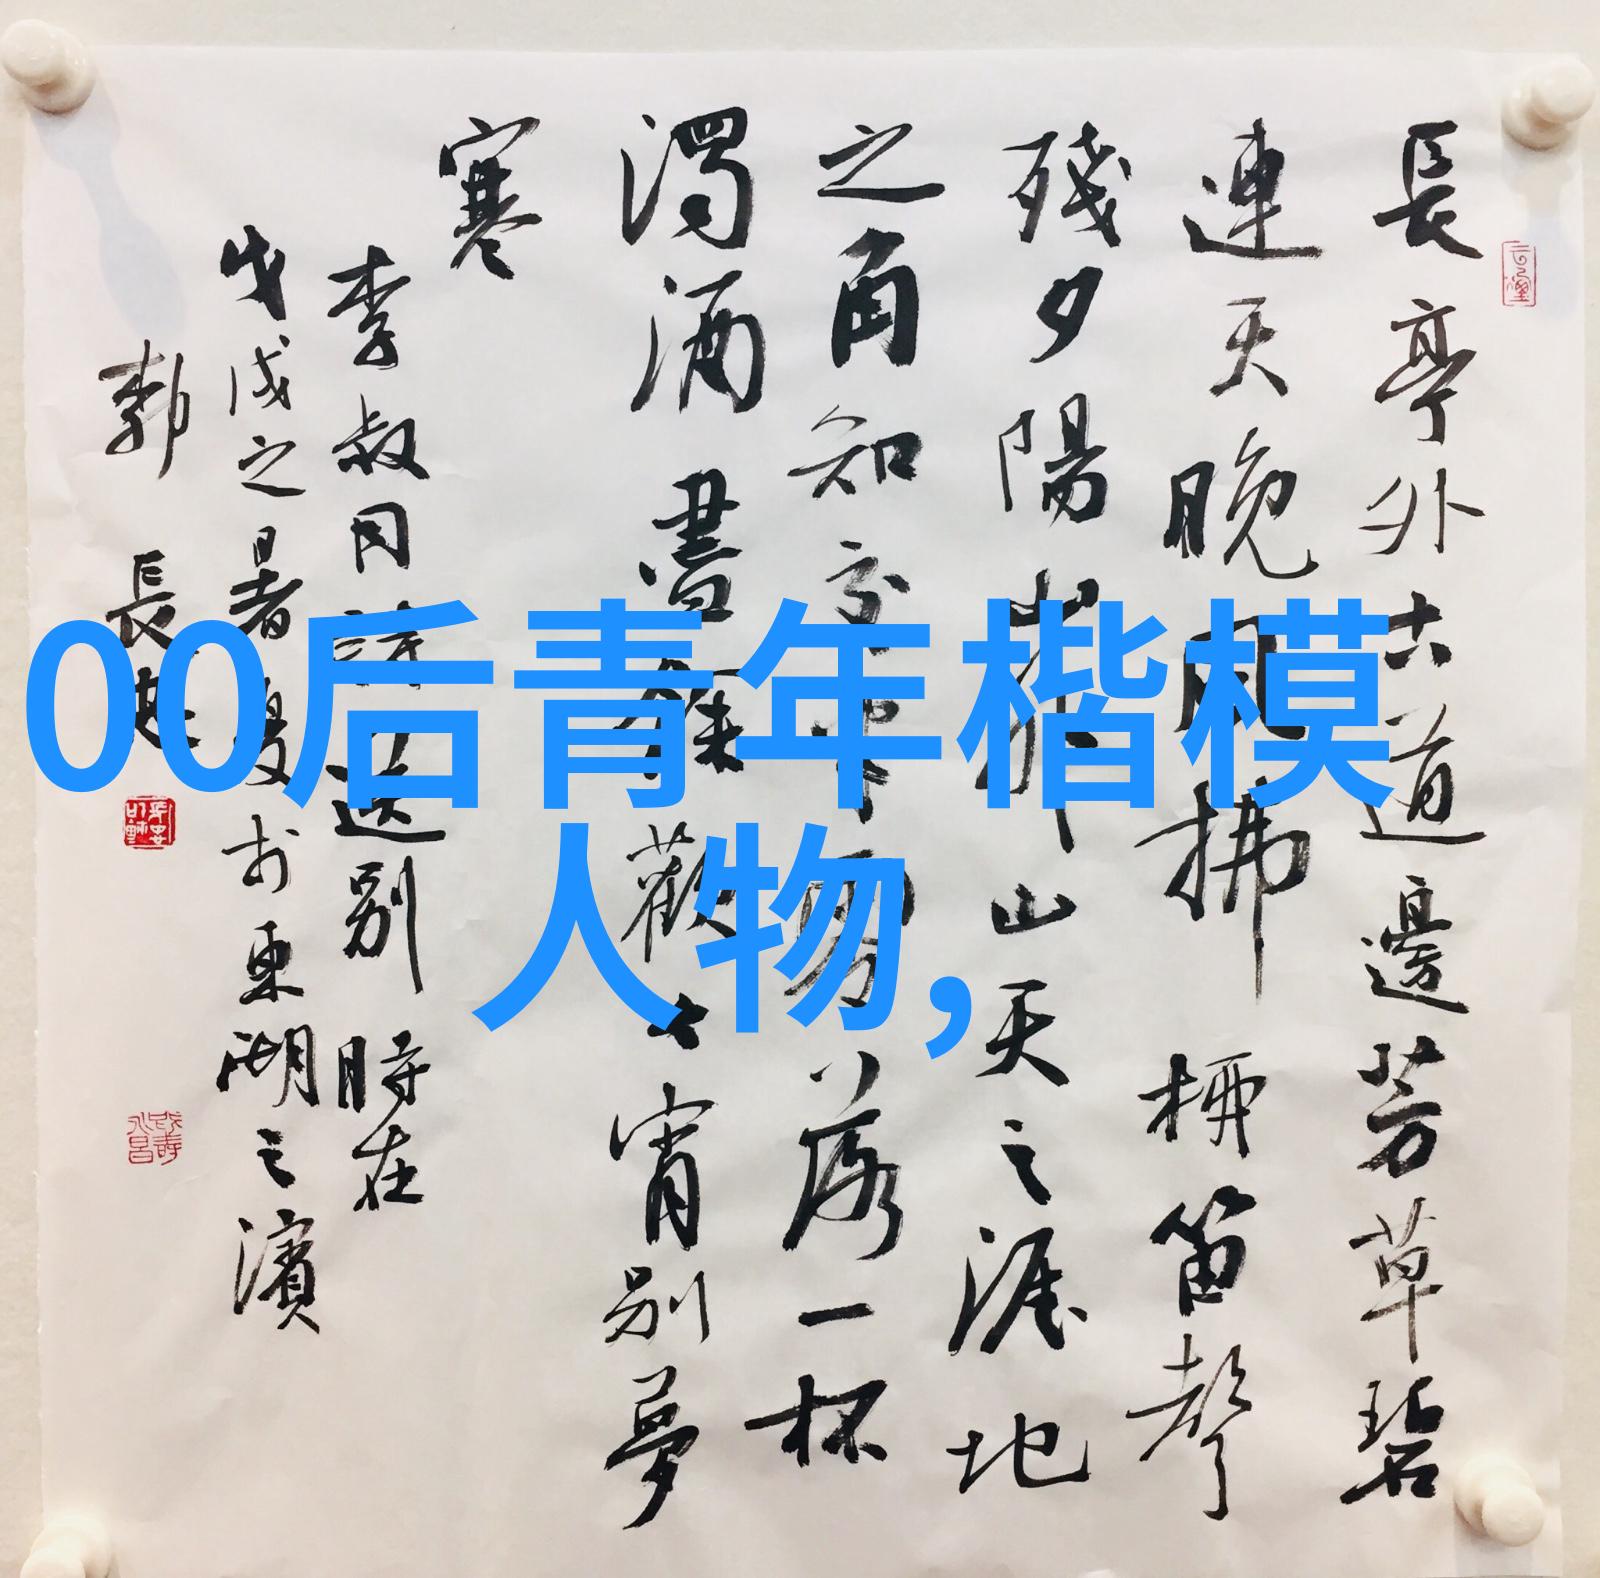 長亭外古道邊芳草碧
連天晚風拂柳笛聲
殘夕陽山外山天之涯地
之角知交半零落一杯
濁酒盡餘歡今宵別夢
寒
李叔同詩送別 時在
戊戌之暑夏於東湖之濱
郭 長
00后青年楷模
人物,